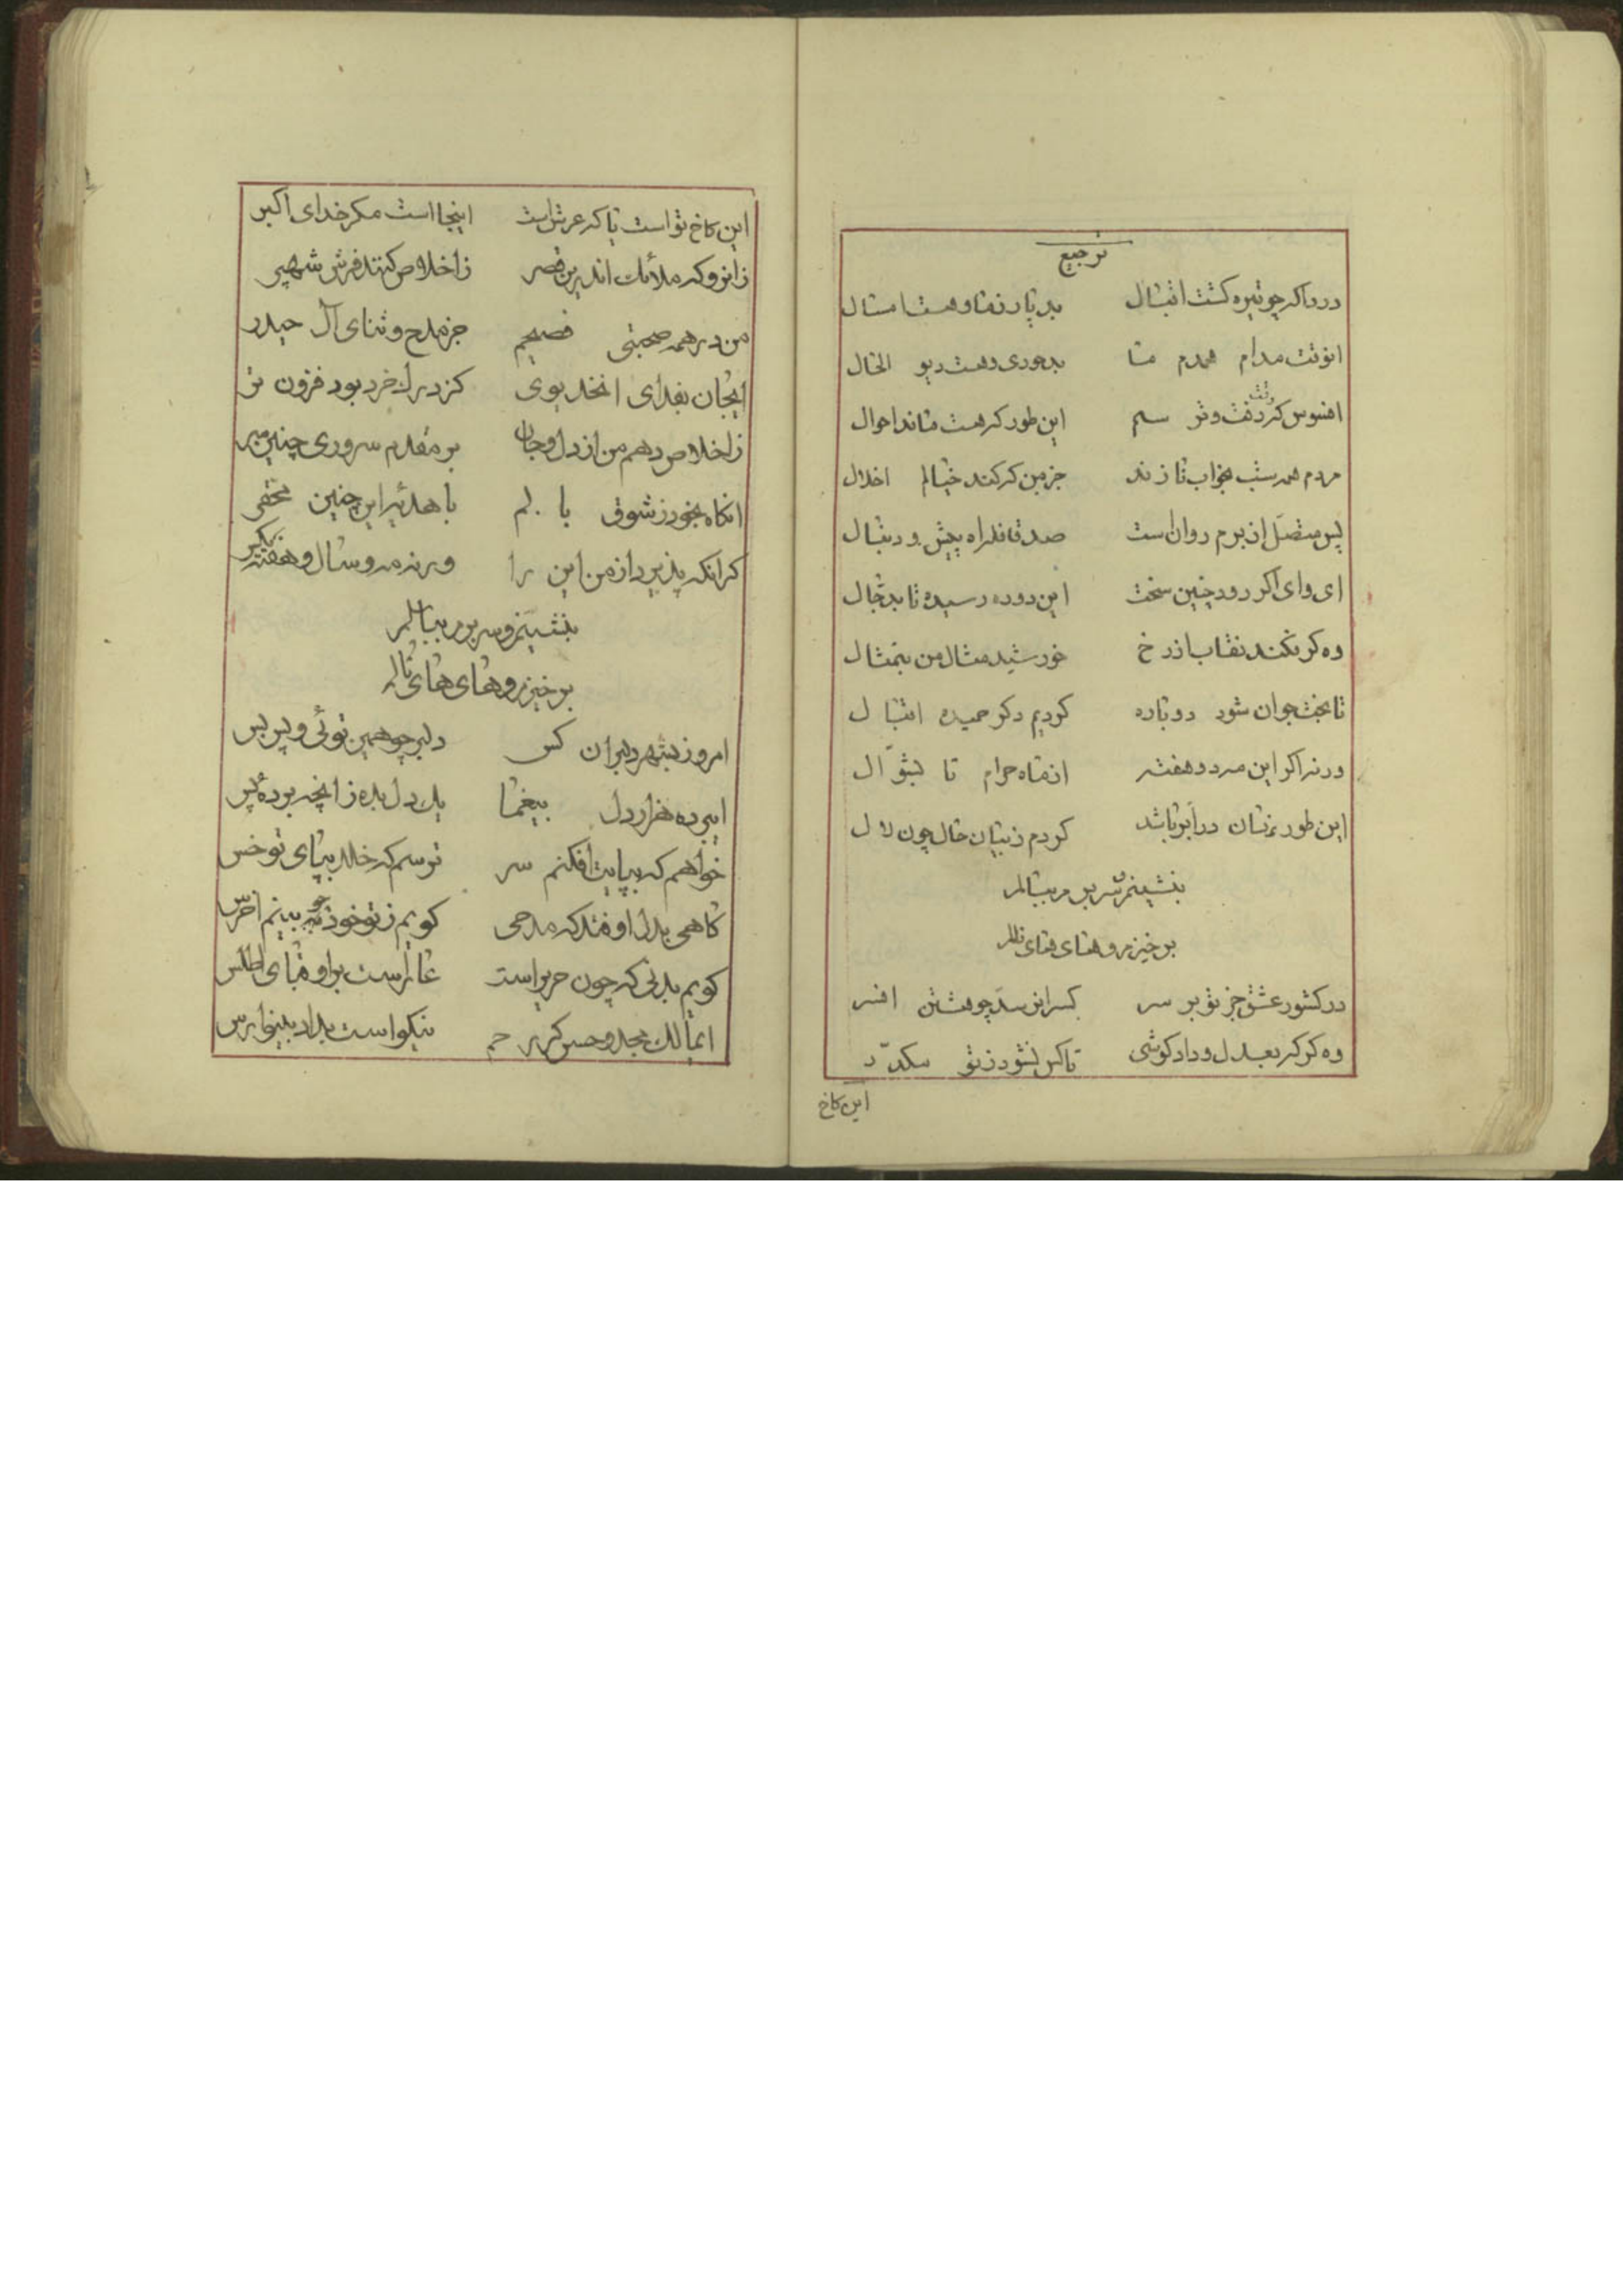 ترجیع
درداکه چو تیره گشت اقبال بد یار زما و هست امسال
انوقت مدام همدم ما بد حوری و هست دیو الحال
افسوس که رفت و نر سم این طور که هست ماند احوال
مردم همه شب بخواب نازند جز من که کند خیالم اخلال
پس متصل از برم روان است صد قافله اه پیش و دنبال
ای وای اگر رود چنین سخت این دوده رسیده تا بدخال
وه کر نکند نقاب از رخ خورشید مثال من بتمثال
تا بخت جوان شود دوباره کردیم دکر حمیده اقبال
ورنه اکر این مه دو هفته از ماه حرام تا بشوّال
این طور نهان در ابر باشد کردم ز بیان حال چون لال
بنشینم و سر برم ببالم
برخیزم و های های نالم
در کشور عشق جز تو بر سر کس را نرسد چو هشتن افسر
وه کر که بعدل و داد کوشی تا کس نشود ز تو مکدّر
این کاخ
این کاخ تو است یا که عرش است اینجا است مکر خدای اکبر
زانرو که ملائک اندرین قصر ز اخلاص کنند فرش شهپر
من در همه صحبتی فصیحم جز مدح و ثنای آل حیدر
ایجان بفدای انخدیوی کز درک خرد بود فزون تر
ز اخلاص دهم من از دل و جان بر مقدم سروری چنین سر
انکاه بخود ز شوق بالم با هدیه این چنین محقر
کر انکه پذیرد از من این را ورنه مه و سال و هفته یکسر
بنشینم و سر برم ببالم
برخیزم و های های نالم
امروز بشهر دلبران کس دلبر چو همین توئی و پس بس
ایبرده هزار دل بیغما یک دل بده ز انچه برده پس
خواهم که بپایت افکنم سر ترسم که خلد بپای تو خس
کاهی بدل اوفتد که مدحی کویم ز تو خود چو به بینم اخرس
کویم بدنی که چون حریر است عار است بر او قبای اطلس
ایمالک مجد و حسن کن رحم نیکو است بداد بینوا رس